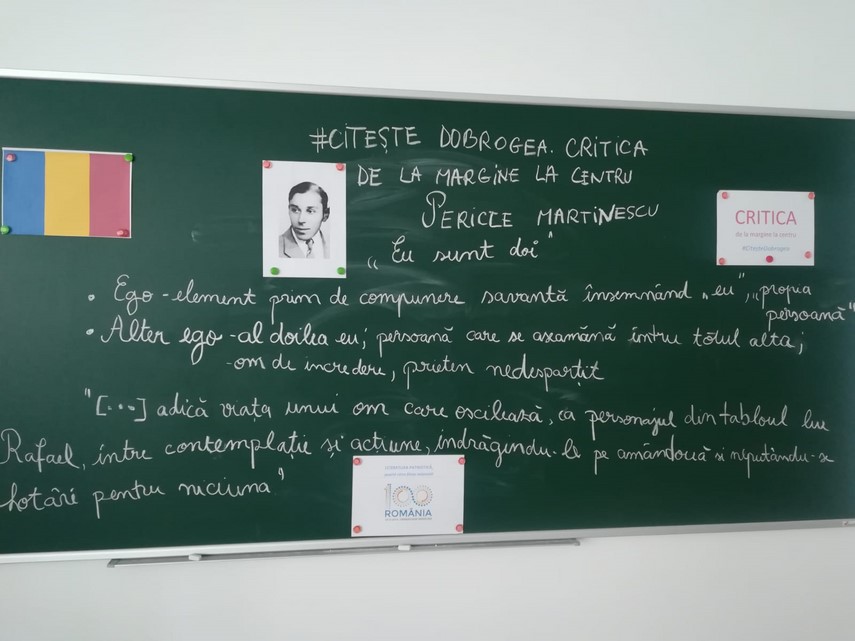 #CITEȘTE DOBROGEA. CRITICA
DE LA MARGINE LA CENTRU
PERICLE MARTINESCU
„Eu sunt doi"
CRITICA
de la margine la centru
#CiteșteDobrogea
• Ego - element prim de compunere savantă însemnând „eu", „propria
persoană"
• Alter ego - al doilea eu; persoană care se aseamănă întru totul alta;
- om de incredere, prieten nedespărțit
"[...] adică viața unui om care oscilează, ca personajul din tabloul lui
Rafael, între contemplație și acțiune, îndrăgindu-le pe amândouă și neputându-se
hotărî pentru niciuna"
100
ROMÂNIA